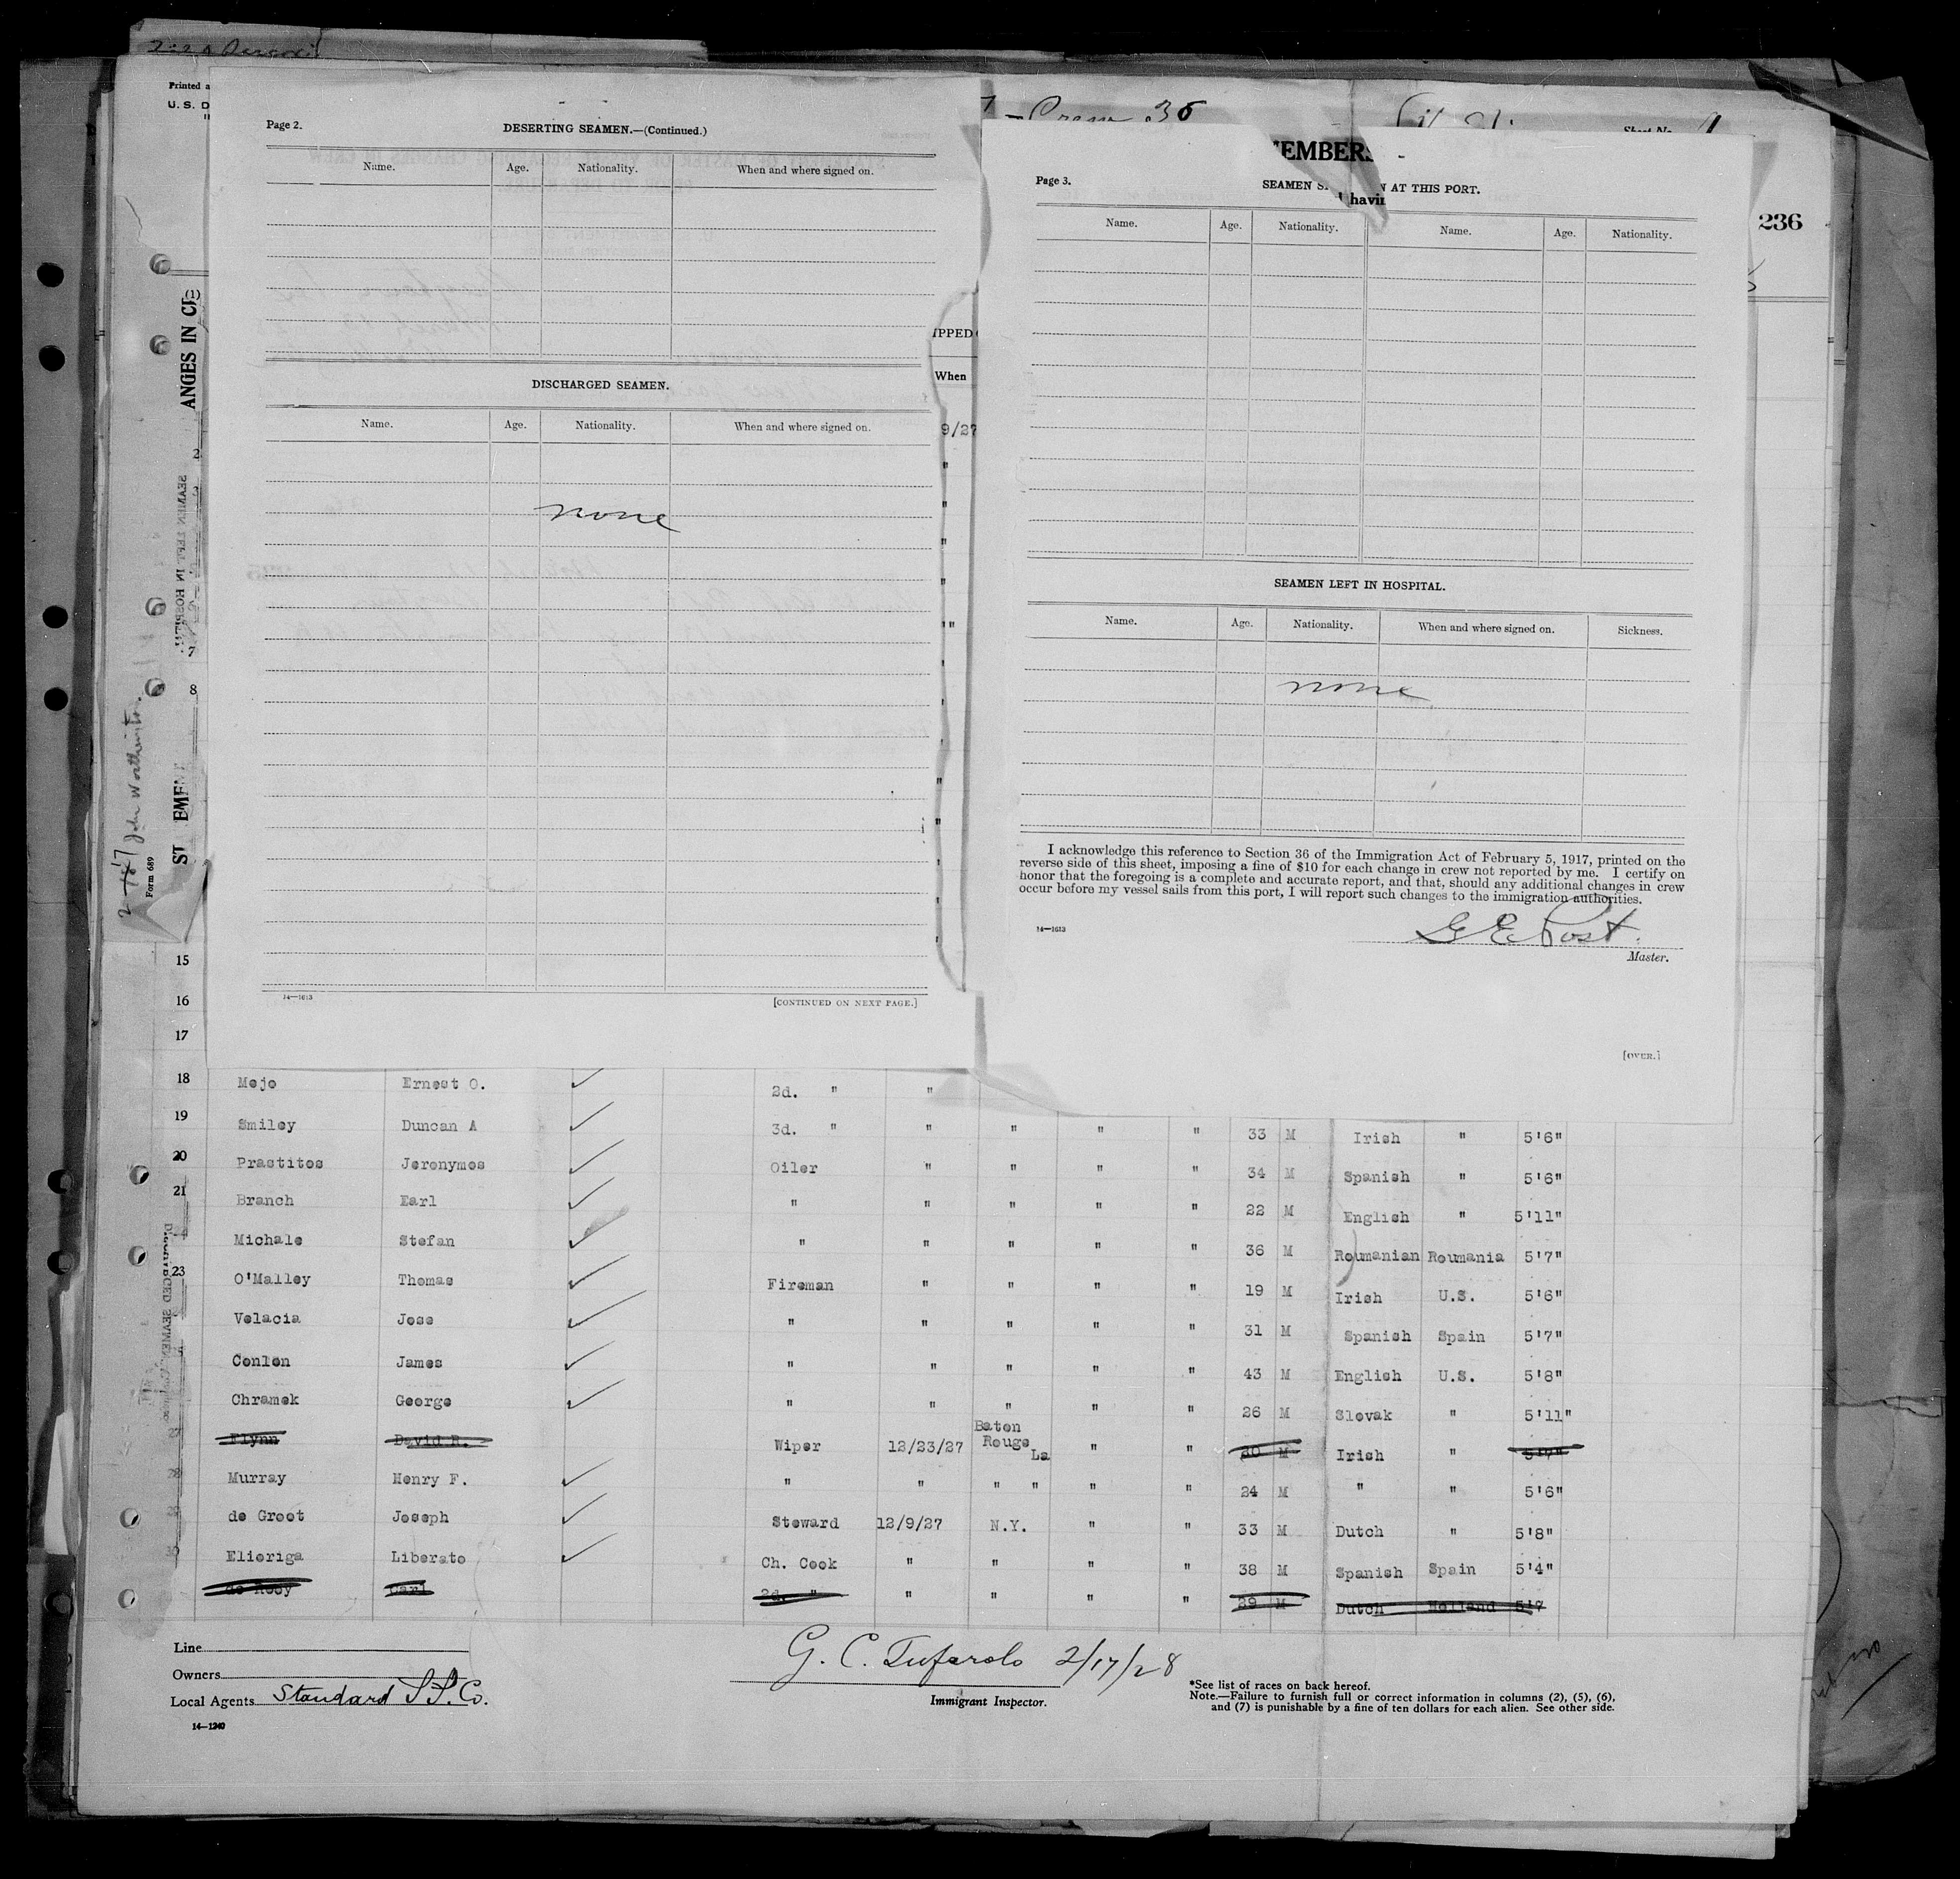 Printed a
U. S. D
Crew 35
Page 2.
DESERTING SEAMEN.—(Continued.)
Name. Age. Nationality. When and where signed on.
DISCHARGED SEAMEN.
Name. Age. Nationality. When and where signed on.
none
14—1613 [CONTINUED ON NEXT PAGE.]
EMBERS
Page 3.
SEAMEN S N AT THIS PORT.
havin
Name. Age. Nationality. Name. Age. Nationality.
236
SEAMEN LEFT IN HOSPITAL.
Name. Age. Nationality. When and where signed on. Sickness.
none
I acknowledge this reference to Section 36 of the Immigration Act of February 5, 1917, printed on the
reverse side of this sheet, imposing a fine of $10 for each change in crew not reported by me. I certify on
honor that the foregoing is a complete and accurate report, and that, should any additional changes in crew
occur before my vessel sails from this port, I will report such changes to the immigration authorities.
14—1613
G E Post.
Master.
[OVER.]
IPPED
When
9/27
ANGES IN C
(1)
2
7
8
Form 689
John Worthington
15
16
17
18 Mejo Ernest O. 2d. " "
19 Smiley Duncan A 3d. " " " " " 33 M Irish " 5'6"
20 Prastitos Jeronymos Oiler " " " " 34 M Spanish " 5'6"
21 Branch Earl " " " " " 22 M English " 5'11"
Michale Stefan " " " " " 36 M Roumanian Roumania 5'7"
23 O'Malley Thomas Fireman " " " " 19 M Irish U.S. 5'6"
Velacia Jose " " " " " 31 M Spanish Spain 5'7"
Conlon James " " " " " 43 M English U.S. 5'8"
Chramek George " " " " " 26 M Slovak " 5'11"
27 Flynn David R. Wiper 12/23/27 Baton Rouge La " " 30 M Irish " 5'7"
28 Murray Henry F. " " " " " " 24 M " " 5'6"
29 de Groot Joseph Steward 12/9/27 N.Y. " " 33 M Dutch " 5'8"
30 Elioriga Liberato Ch. Cook " " " " 38 M Spanish Spain 5'4"
de Rooy Carl 2d. " " " " " 29 M Dutch Holland 5'7
Line
Owners
Local Agents Standard S.S. Co.
14—1240
G. C. Tuferolo 2/17/28
Immigrant Inspector.
*See list of races on back hereof.
Note.—Failure to furnish full or correct information in columns (2), (5), (6),
and (7) is punishable by a fine of ten dollars for each alien. See other side.